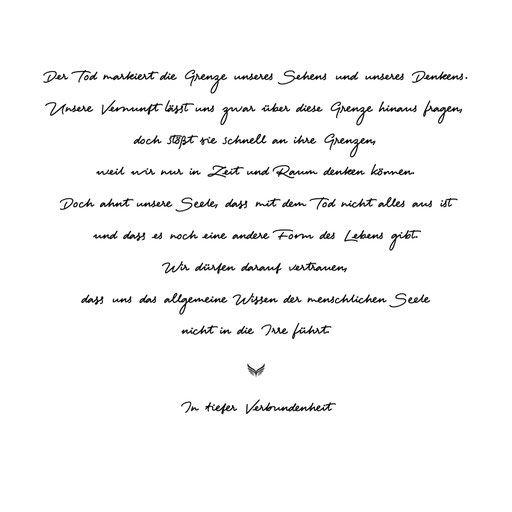 Der Tod markiert die Grenze unseres Sehens und unseres Denkens.
Unsere Vernunft lässt uns zwar über diese Grenze hinaus fragen,
doch stößt sie schnell an ihre Grenzen,
weil wir nur in Zeit und Raum denken können.
Doch ahnt unsere Seele, dass mit dem Tod nicht alles aus ist
und dass es noch eine andere Form des Lebens gibt.
Wir dürfen darauf vertrauen,
dass uns das allgemeine Wissen der menschlichen Seele
nicht in die Irre führt.
In tiefer Verbundenheit